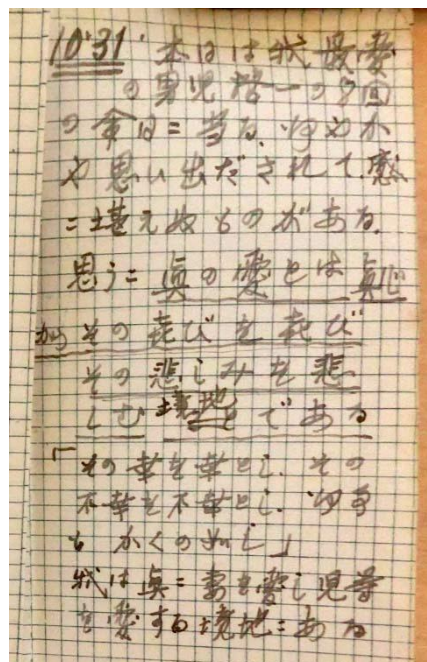 10.31 本日は我最愛
の男児 一の8回
の命日ニ当る、何やか
や思い出だされて、感
ニ堪えぬものがある、
思うニ 真の愛とは 真心
から その喜びを喜び
その悲しみを悲
しむ 境地である
「その幸を幸とし、その
不幸を不幸とし、何事
もかくの如し」
我は真ニ妻を愛し児等
を愛する境地ニある